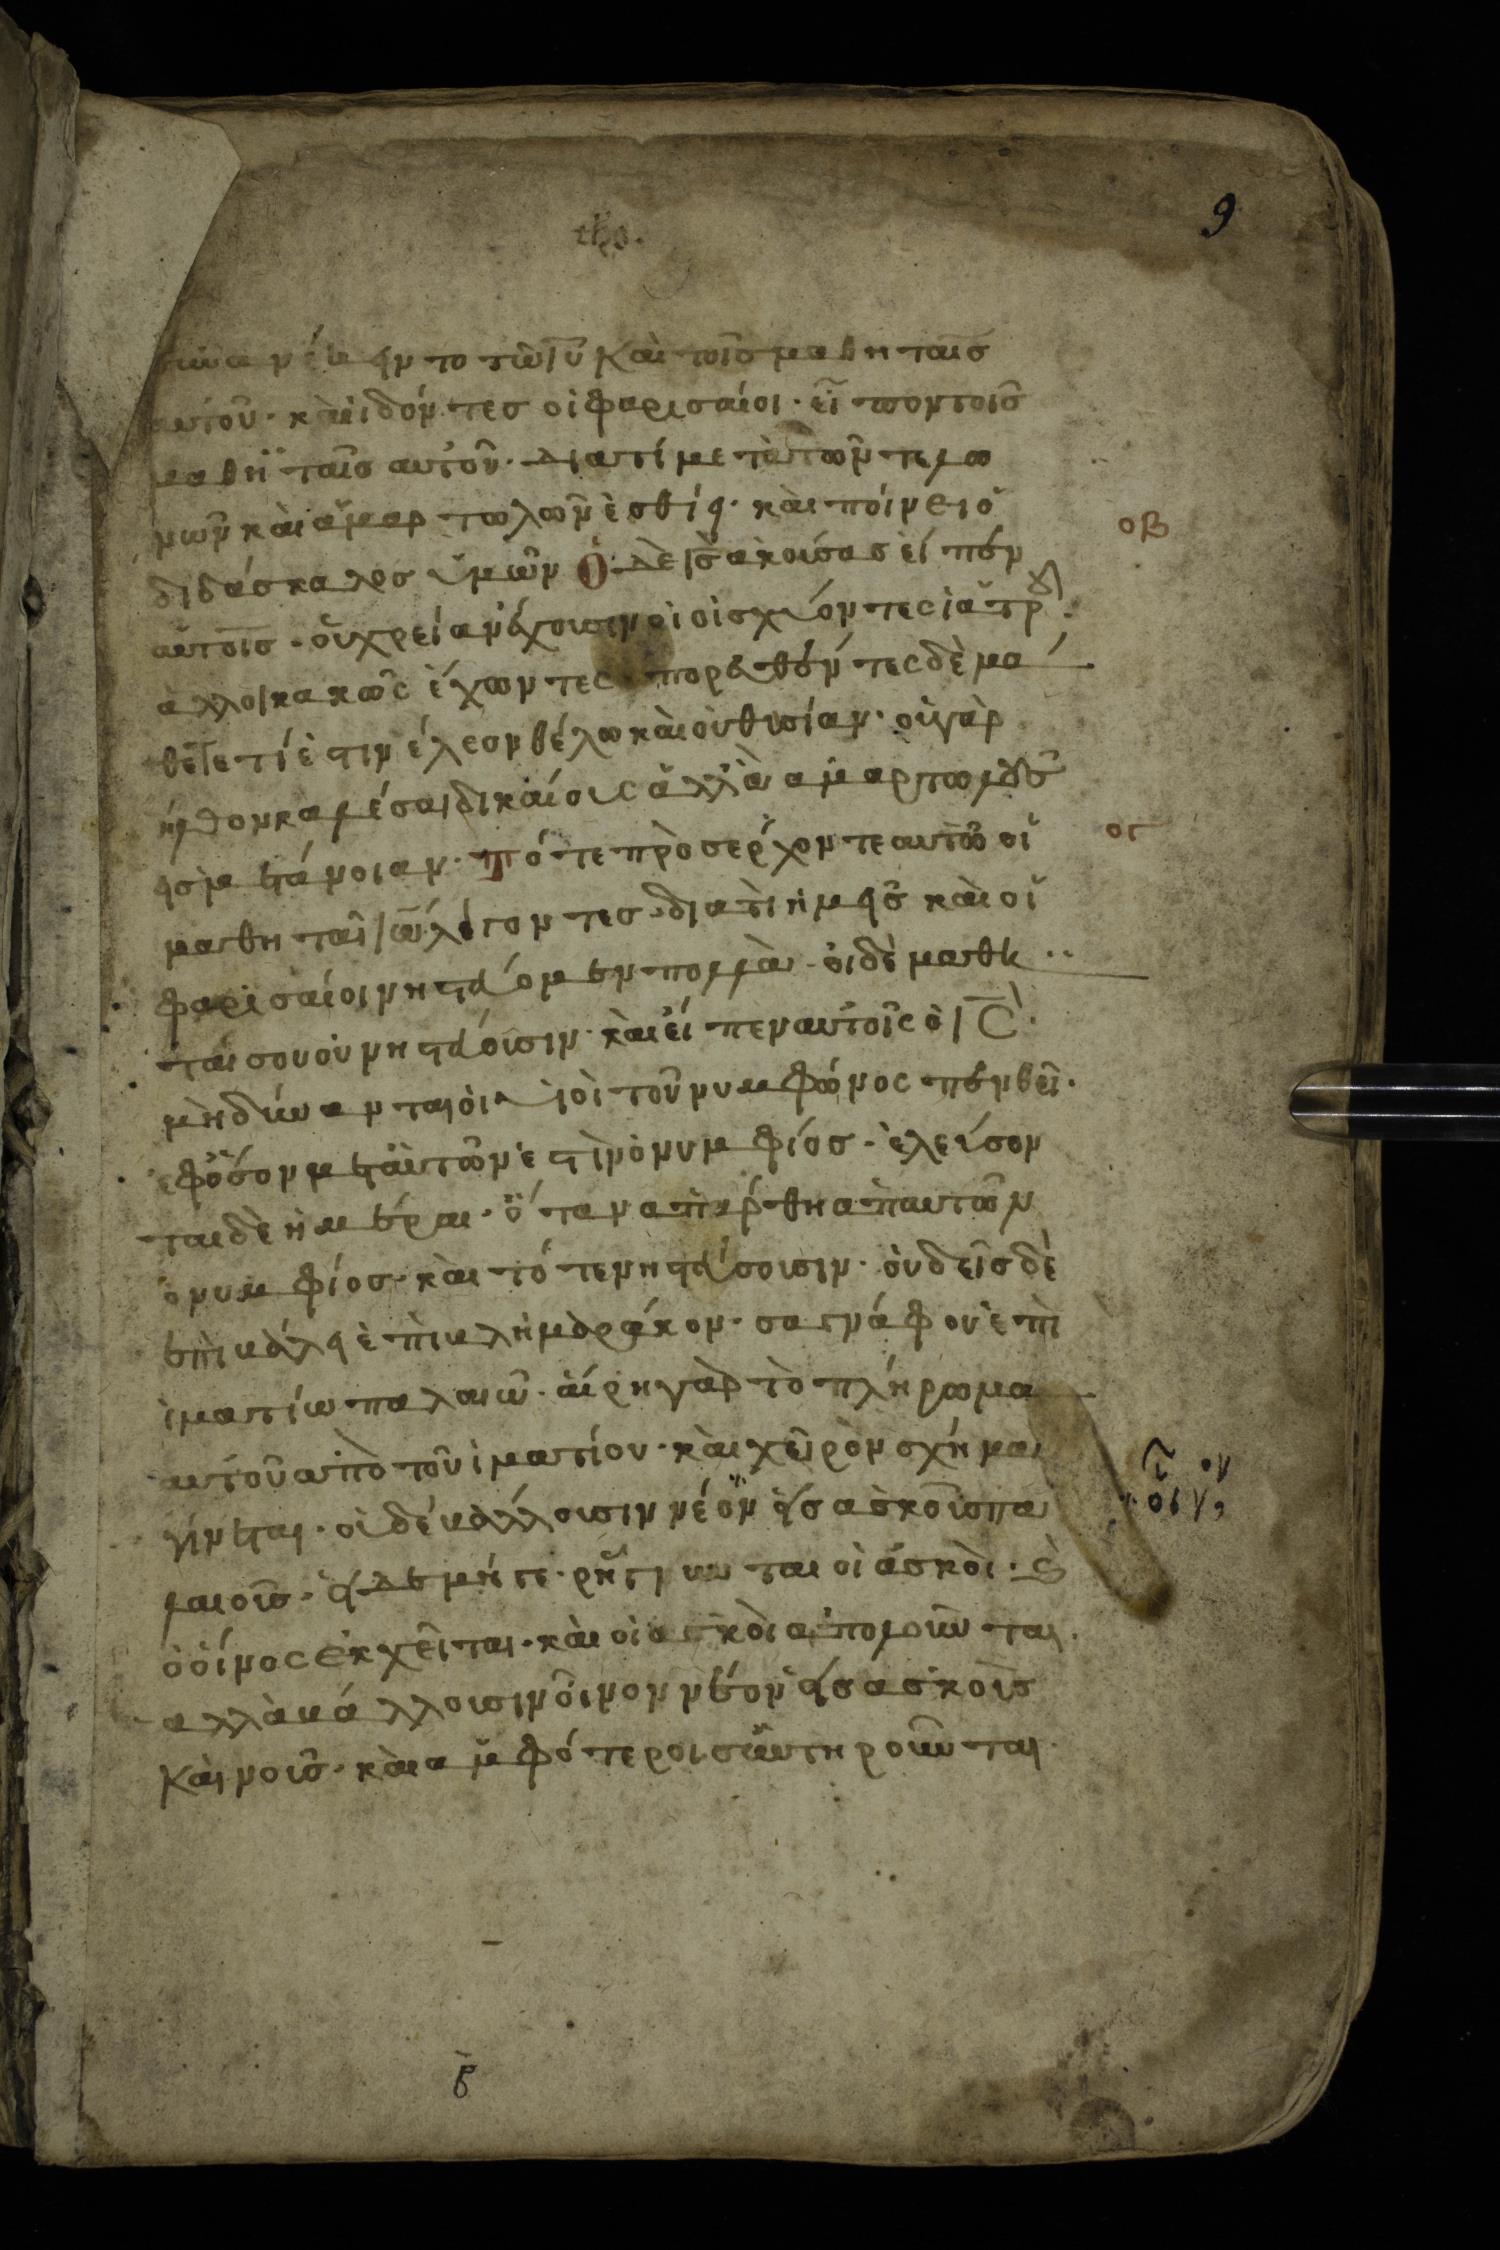 9
συνανέκειντο τῶ ιυ καὶ τοῖς μαθηταῖς
αυτοῦ· καὶ ιδόντες οἱ φαρισαίοι· εἶπον τοῖς
μαθηταῖς αυτοῦ· διατί μετὰ τῶν τελω
μῶν καὶ αμαρτωλῶν ἐσθίει· καὶ πόινει ὁ
οβ
διδάσκαλος ὑμῶν ὁ δὲ ις ακοισας εἶπεν
αυτοῖς· οὐ χρείαν ἔχοισιν οἱ οἰσχύοντες ἰατρου
ἀλλοι κακῶς ἔχωντες· πορευθέντες δὲ μά
θετε τί ἐστιν ἔλεον θέλω καὶ οὐ θυσίαν· οὐ γὰρ
ήλθον καλέσαι δικαίους ἀλλὰ αμαρτωλοὺς
ογ
εις μετάνοιαν· τότε πρὸσερχοντε αυτῶ οἱ
μαθηταὶ ιω λέγοντες· διατὶ ημεῖς καὶ οἱ
φαρισαίοι νηστεύομεν πολλὰ· οἱ δὲ μαθη
ταὶ σου οὐ νηστεύοισιν· καὶ εἶπεν αυτοῖς ὁ ις
μὴ δύνανται οἱ υἱοὶ τοῦ νυμφώνος πενθεῖν·
εφόσον μεταυτῶν ἐστὶν ὁ νυμφίος· ἐλεύσον
ται δὲ ημέραι· ὅταν απαρθη απαυτῶν
ο νυμφίος· καὶ τότε νηστεύσοισιν· οὐδεῖς δὲ
επιβάλει ἐπίβλημα ράκον· σαγνάφου ἐπὶ
ἱματίω παλαιῶ· αίρη γὰρ τὸ πλήρωμα
αυτοῦ απὸ τοῦ ἱματίου· καὶ χεῖρον σχήμα
γίνεται· οἱ δέ βάλλοισιν νέον εἰς ασκοῖς πα
λαιοῖς· εἰ δε μήτε· ρήγνυνται οἱ ἀσκοὶ· καὶ
ὁ οίνος εκχεῖται· καὶ οἱ ασκοὶ απολοῦνται·
αλλὰ βάλλοισιν οἶνον νέον εἰς ασκοῖς
καινοῖς· καὶ αμφότεροι συντηροῦνται·